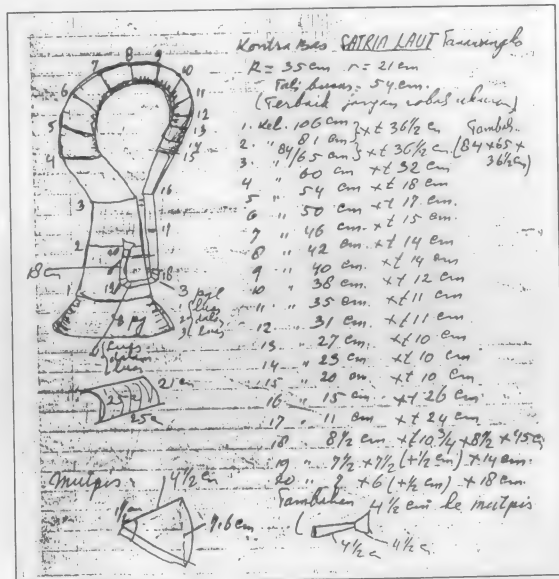 Kontra Bas SATRIA LAUT
R = 35 cm r = 21 cm
Tali busur = 54 cm.
(Terbaik jangan robah ukuran)
1. Kel. 106 cm } x t 36½ cm Tambah.
2. " 81 cm
84/65 cm } x t 36½ cm (84 x 65 x 36½ cm)
3. " 60 cm x t 32 cm
4 " 54 cm x t 18 cm
5 " 50 cm x t 17 cm.
6 " 46 cm. x t 15 cm.
7 " 42 cm x t 14 cm
8 " 40 cm. x t 14 cm
9 " 38 cm. x t 12 cm
10 " 35 cm. x t 11 cm
11 " 31 cm. x t 11 cm
12 " 27 cm. x t 10 cm
13 " 23 cm x t 10 cm
14 " 20 cm x t 10 cm
15 " 15 cm x t 26 cm
16 " 11 cm x t 24 cm
17
18 8½ cm x t 10¾ + 8½ + 45 cm
19 " 7½ + 7½ (+½ cm) + 14 cm.
20 " 7 + 6 (+½ cm) + 18 cm.
Tambahan 4½ cm ke mulpis
4½ c 4½ c
1
2
3
4
5
6
7
8
9
10
11
12
13
14
15
16
18
18 cm
3
1
2
3
21 cm
25 c
25 c
Mulpis:
4½ cm
7.6 cm